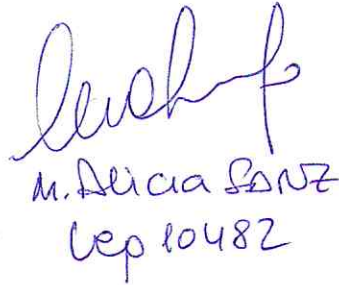 M. Alicia SANZ
Lep 10482